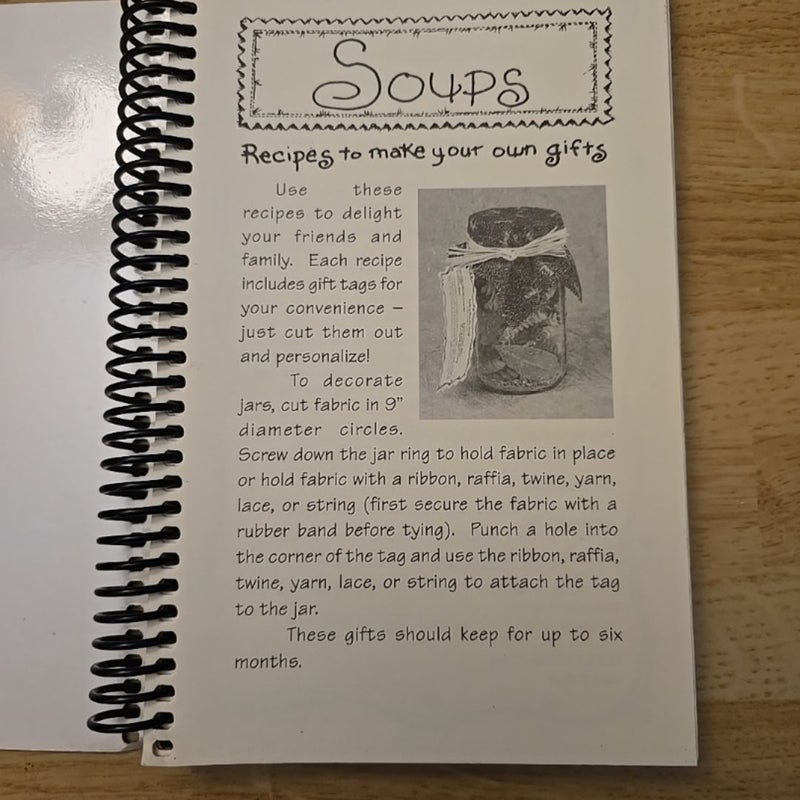 Soups
Recipes to make your own gifts
Use these
recipes to delight
your friends and
family. Each recipe
includes gift tags for
your convenience –
just cut them out
and personalize!
To decorate
jars, cut fabric in 9”
diameter circles.
Screw down the jar ring to hold fabric in place
or hold fabric with a ribbon, raffia, twine, yarn,
lace, or string (first secure the fabric with a
rubber band before tying). Punch a hole into
the corner of the tag and use the ribbon, raffia,
twine, yarn, lace, or string to attach the tag
to the jar.
These gifts should keep for up to six
months.